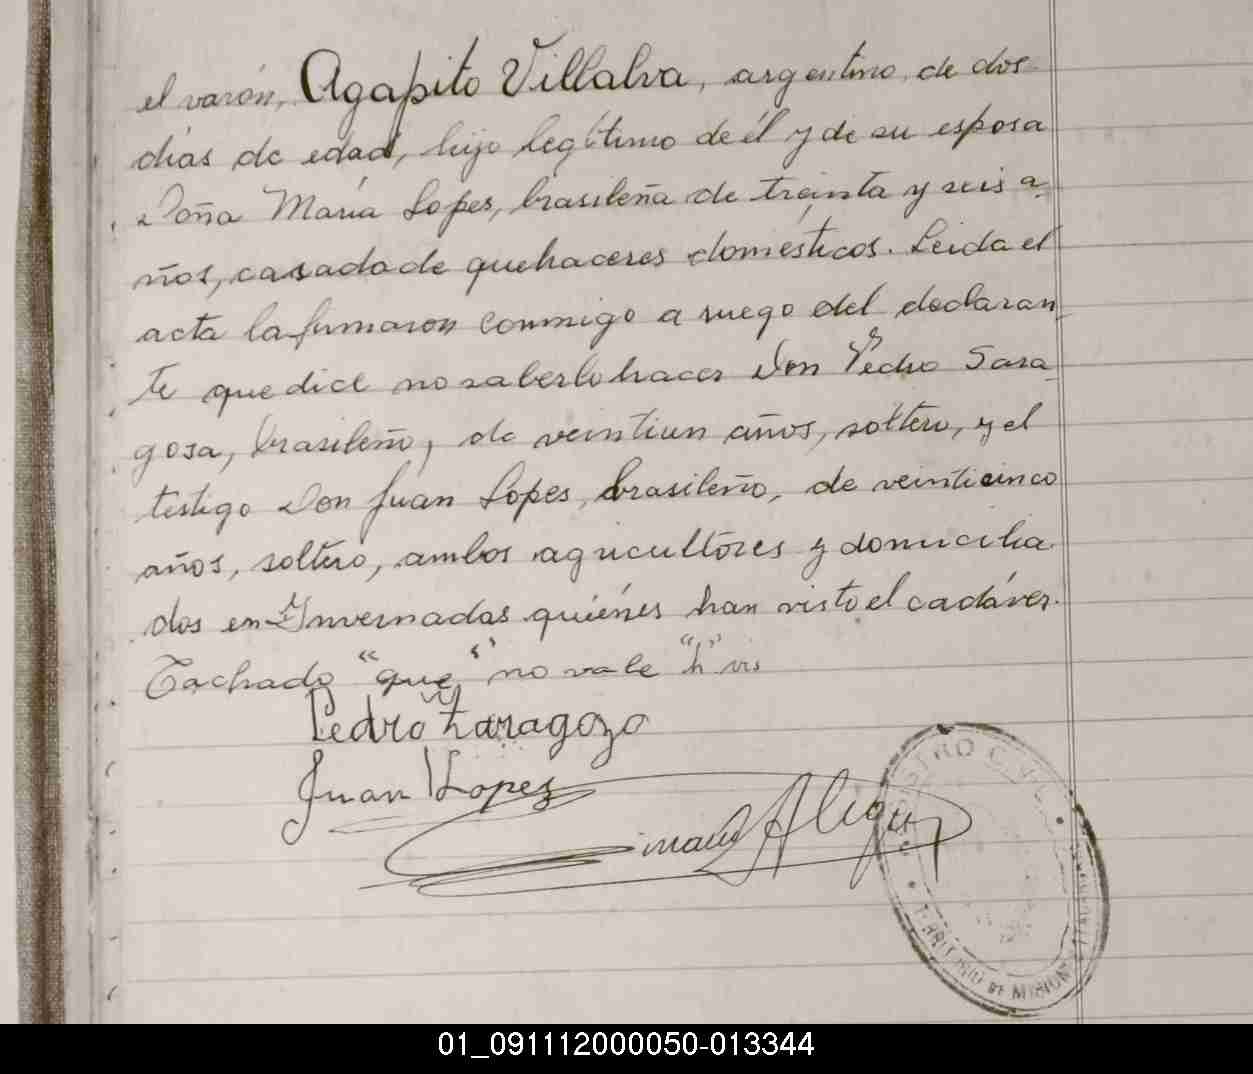 el varón, Agapito Villalva, argentino, de dos
días de edad, hijo legítimo de él y de su esposa
Doña María Lopes, brasileña de treinta y seis a-
ños, casada de quehaceres domésticos. Leida el
acta la firmaron conmigo a ruego del declaran
te que dice no saberlo hacer Don Pedro Sara-
gosa, brasileño, de veintiun años, soltero, y el
testigo Don Juan Lopes, brasileño, de veinticinco
años, soltero, ambos agricultores y domicilia
dos en Invernadas quiénes han visto el cadáver.
Tachado "que" no vale "h"
Pedro Zaragozo
Juan Lopez
REGISTRO CIVIL
TERRITORIO DE MISIONES
01_091112000050-013344